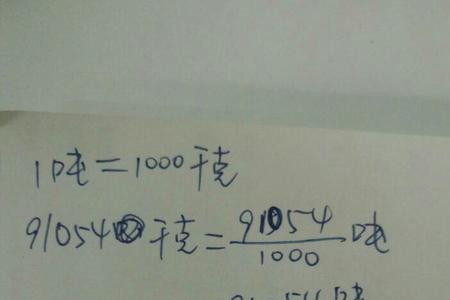 1吨=1000千克
91054千克=91054/1000吨